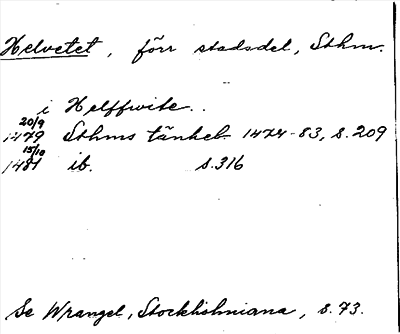 Helvetet, förr stadsdel, Sthm.
i Helffwite..
20/9
1479 Sthms tänkeb. 1474-83, s. 209
15/10
1481 ib. s. 316
Se Wrangel, Stockholmiana, s. 73.